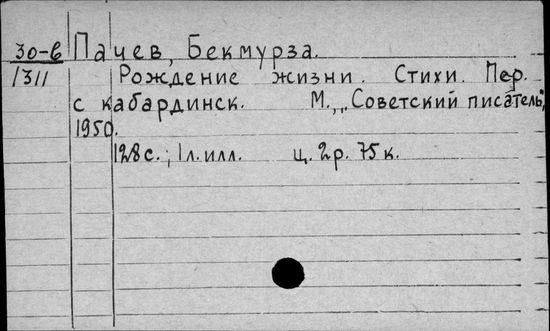 30-6 Пачев, Бекмурза.
1311 Рождение жизни. Стихи. Пер.
с кабардинск. М., „Советский писатель",
1950.
128 с.; 1 л. илл. ц. 2 р. 75 к.